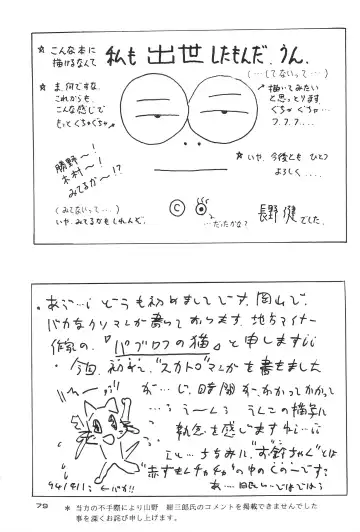 ☆ こんな本に
描けるなんて
私も 出世 したもんだ。うん。
(…してないって…)
☆ ま、何ですな、
これからも、
こんな感じで
もっとぐちゃぐちゃ
描いてみたい
と思っとります
ぐちゃ ぐちゃ…
フ.フ.フ...
勝野〜!
木村〜!
みてるか〜!?
☆ いや、今後とも ひとつ
よろしく....
(みてないって…)
いや、みてるかもしれんぞ。
©
…だったかな?
長野 健でした。
・あう…i どうも初めましてです。岡山で、
バカなクソマンガ書いております、地方マイナー
作家の、『パブロフの猫』と申しますii
・今回、初めて、"スカトロ"マンガを書きました
が…i、時間が、かかってかかって
…う〜んう うんこの描写に
執念を感じますゆ…i
"お鈴ちゃん"とは
"赤ずきんチャチャ"の中の
あ…眠い…ではでは
79
* 当方の不手際により山野 総三郎氏のコメントを掲載できませんでした
事を深くお詫び申し上げます。